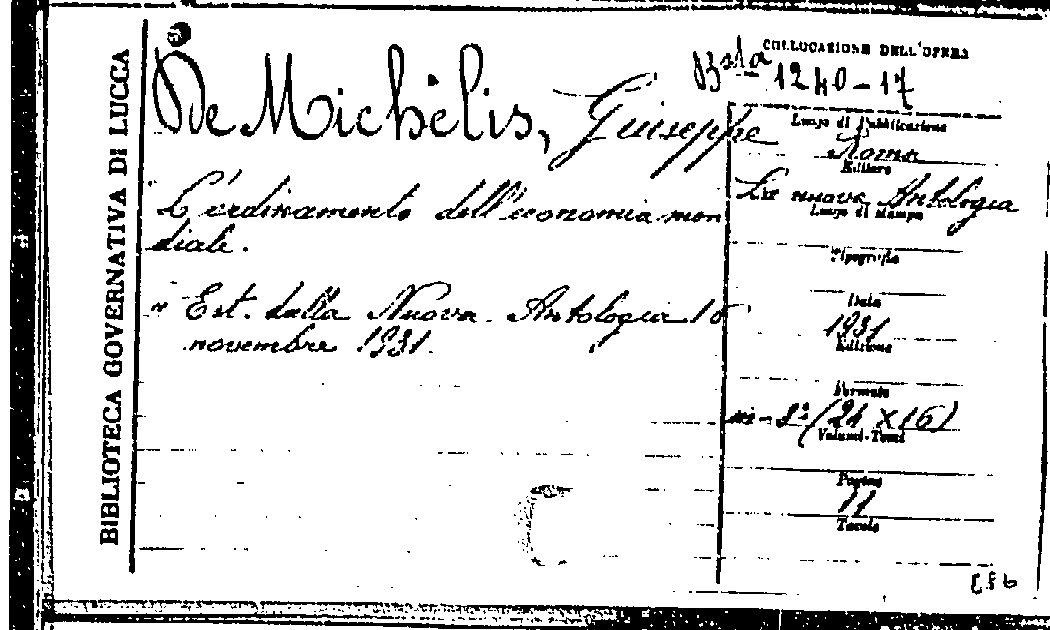 BIBLIOTECA GOVERNATIVA DI LUCCA
De Michelis, Giuseppe
L'ordinamento dell'economia mon
diale.
" Est. dalla Nuova Antologia 16
novembre 1931.
COLLOCAZIONE DELL'OPERA
Bsta 1240-17
Luogo di Pubblicazione
Roma
Editore
La nuova Antologia
Luogo di stampa
Tipografia
Data
1931
Edizione
Formato
in-8° (24 x 16)
Volumi-Tomi
Pagine
11
Tavole